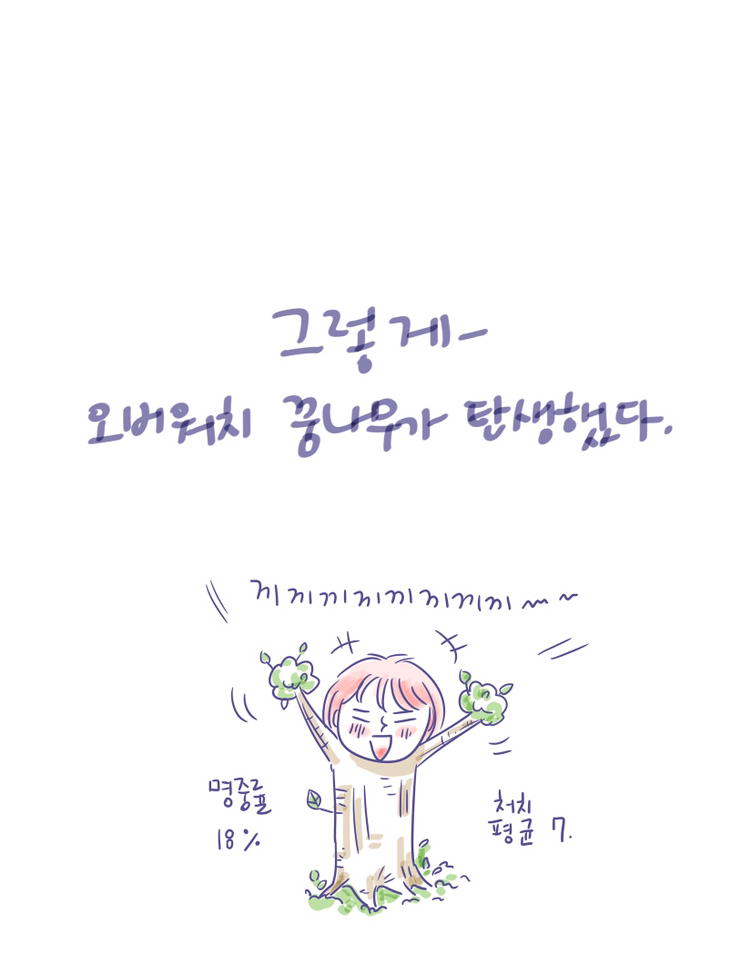 그렇게-
오버워치 꿍나무가 탄생했다.
끼끼끼끼끼끼끼끼~~
명중률
18%
처치
평균 7.